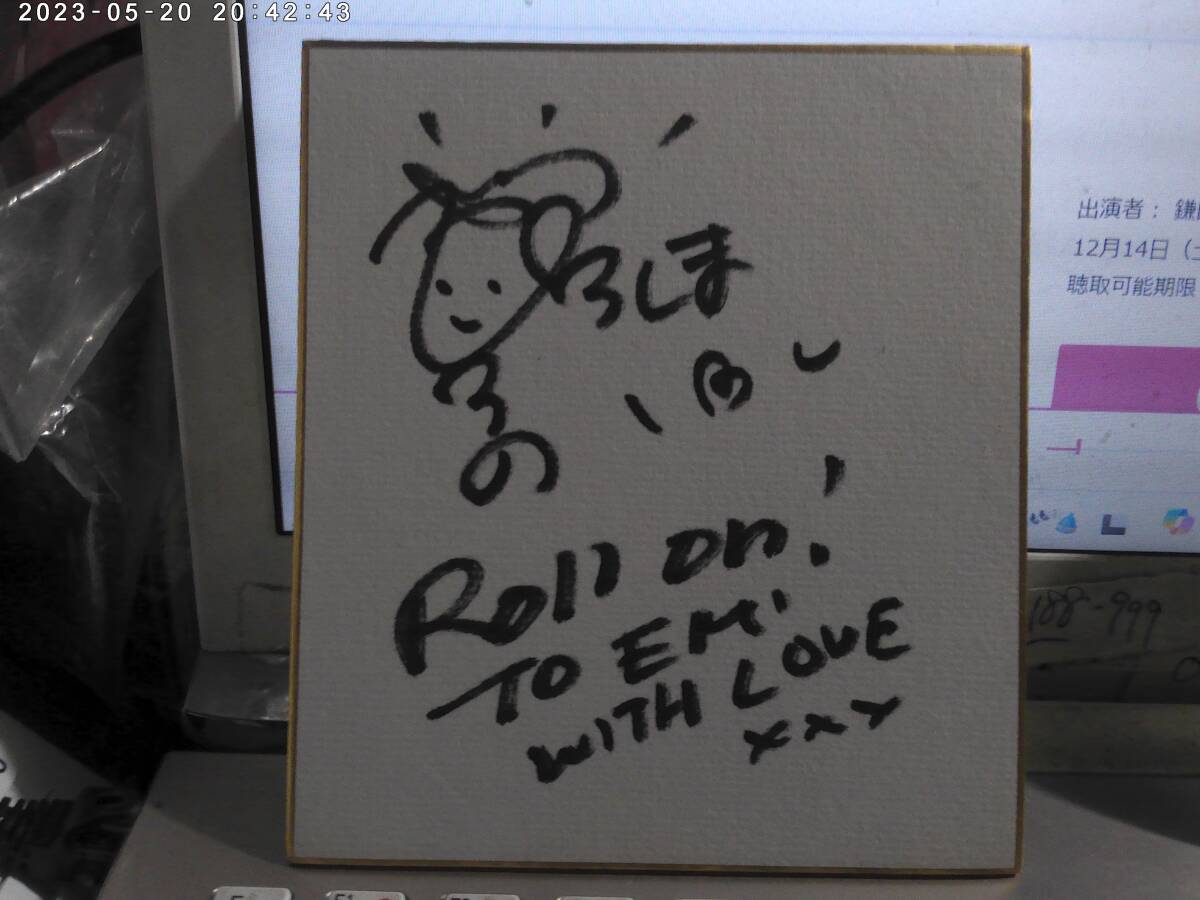 2023-05-20 20:42:43
出演者： 鎌
12月14日（土
聴取可能期限
ろしま
ろの
Roll on!
TO EMI
WITH LOVE
xxx
188-999